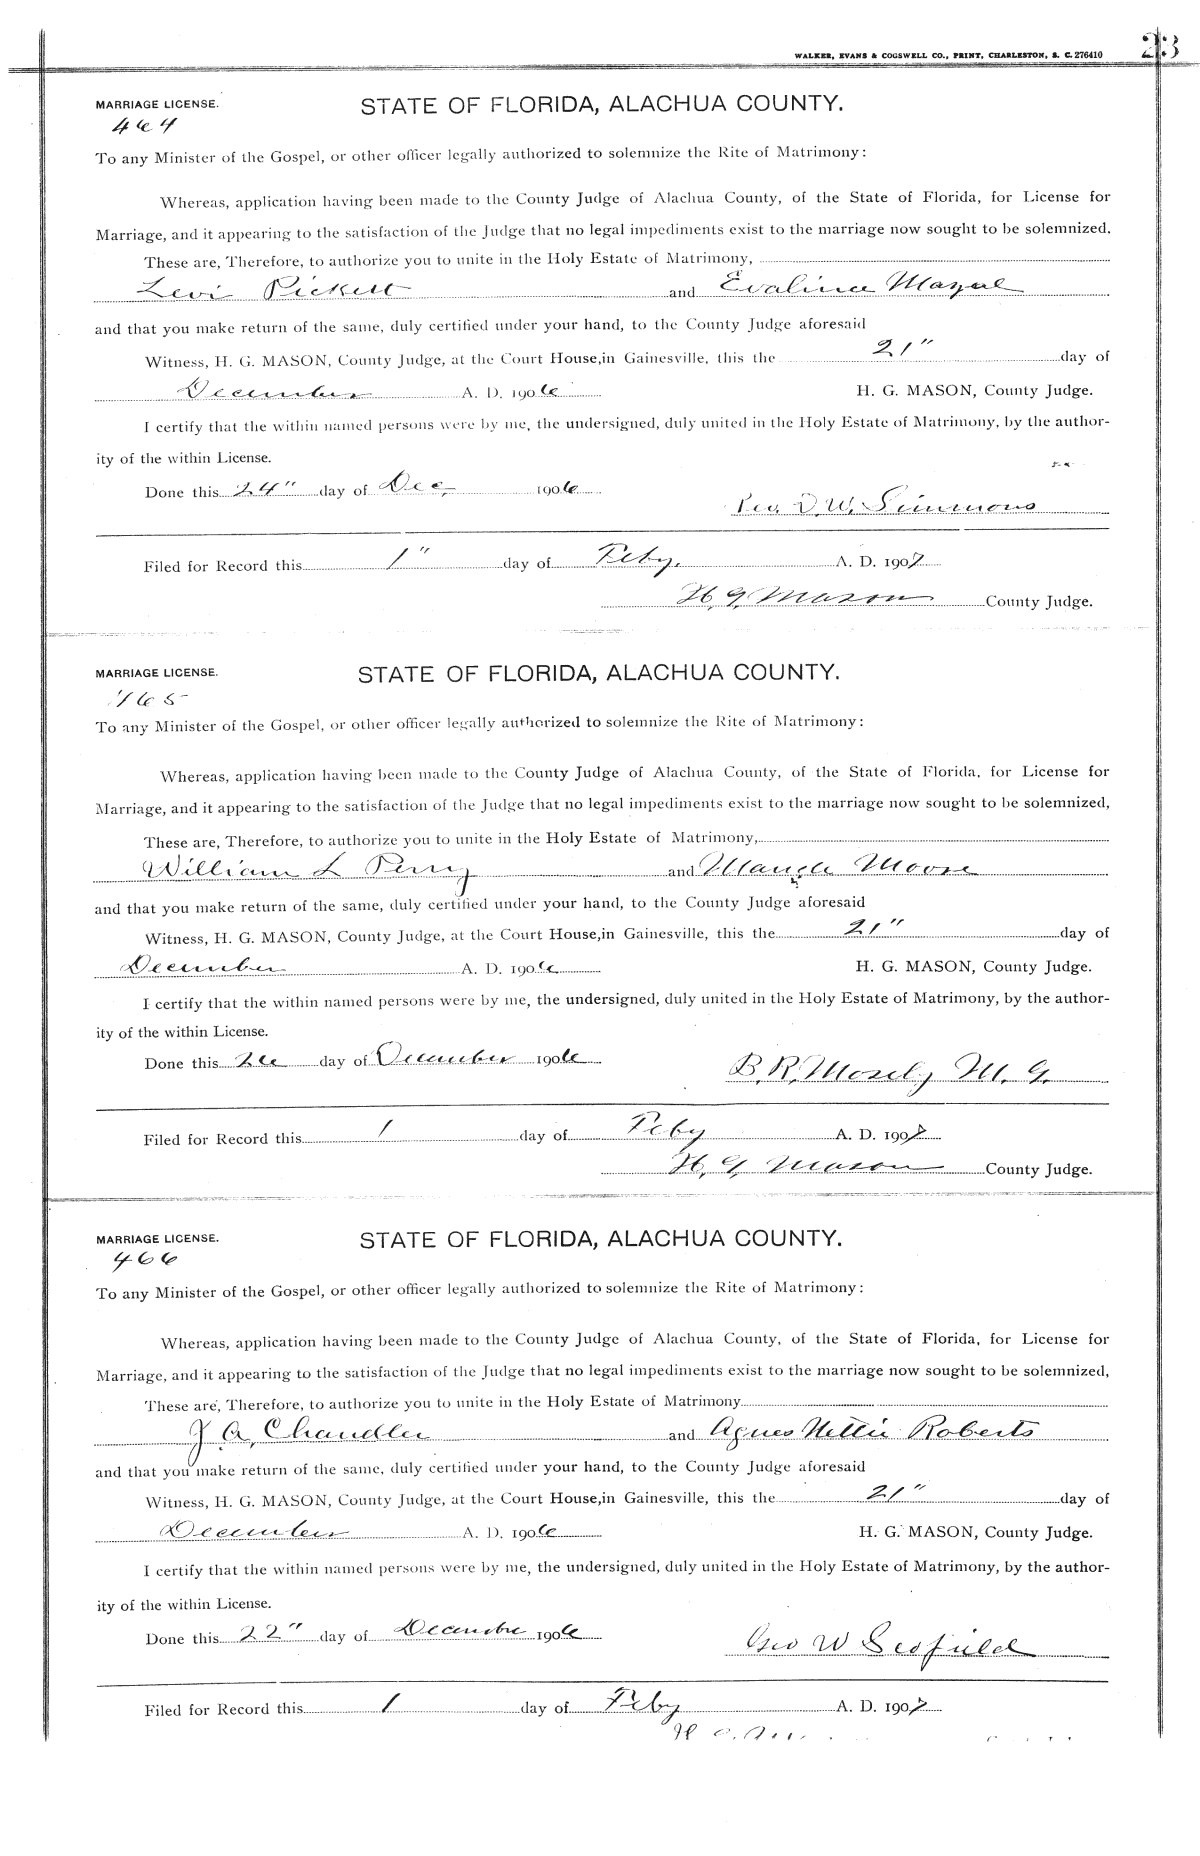 WALKER, EVANS & COGSWELL CO., PRINT, CHARLESTON, S. C. 276410
23
MARRIAGE LICENSE.
STATE OF FLORIDA, ALACHUA COUNTY.
464
To any Minister of the Gospel, or other officer legally authorized to solemnize the Rite of Matrimony:
Whereas, application having been made to the County Judge of Alachua County, of the State of Florida, for License for
Marriage, and it appearing to the satisfaction of the Judge that no legal impediments exist to the marriage now sought to be solemnized.
These are, Therefore, to authorize you to unite in the Holy Estate of Matrimony,
Levi Pickett and Evalina
and that you make return of the same, duly certified under your hand, to the County Judge aforesaid
Witness, H. G. MASON, County Judge, at the Court House, in Gainesville, this the 21" day of
December A. D. 1906 H. G. MASON, County Judge.
I certify that the within named persons were by me, the undersigned, duly united in the Holy Estate of Matrimony, by the author-
ity of the within License.
Done this 24" day of Dec, 1906
Rev. D. W. Simmons
Filed for Record this 1" day of Feby, A. D. 1907
H. G. Mason County Judge.
MARRIAGE LICENSE.
STATE OF FLORIDA, ALACHUA COUNTY.
465
To any Minister of the Gospel, or other officer legally authorized to solemnize the Rite of Matrimony:
Whereas, application having been made to the County Judge of Alachua County, of the State of Florida, for License for
Marriage, and it appearing to the satisfaction of the Judge that no legal impediments exist to the marriage now sought to be solemnized,
These are, Therefore, to authorize you to unite in the Holy Estate of Matrimony,
William L Perry and Maude Moore
and that you make return of the same, duly certified under your hand, to the County Judge aforesaid
Witness, H. G. MASON, County Judge, at the Court House, in Gainesville, this the 21" day of
December A. D. 1906 H. G. MASON, County Judge.
I certify that the within named persons were by me, the undersigned, duly united in the Holy Estate of Matrimony, by the author-
ity of the within License.
Done this 26 day of December 1906
B. R. Mosely M. G.
Filed for Record this 1 day of Feby A. D. 1907
H. G. Mason County Judge.
MARRIAGE LICENSE.
STATE OF FLORIDA, ALACHUA COUNTY.
466
To any Minister of the Gospel, or other officer legally authorized to solemnize the Rite of Matrimony:
Whereas, application having been made to the County Judge of Alachua County, of the State of Florida, for License for
Marriage, and it appearing to the satisfaction of the Judge that no legal impediments exist to the marriage now sought to be solemnized,
These are, Therefore, to authorize you to unite in the Holy Estate of Matrimony
J A, Chandler and Agnes Nettie Roberts
and that you make return of the same, duly certified under your hand, to the County Judge aforesaid
Witness, H. G. MASON, County Judge, at the Court House, in Gainesville, this the 21" day of
December A. D. 1906 H. G. MASON, County Judge.
I certify that the within named persons were by me, the undersigned, duly united in the Holy Estate of Matrimony, by the author-
ity of the within License.
Done this 22" day of December 1906
Geo W Scofield
Filed for Record this 1 day of Feby A. D. 1907